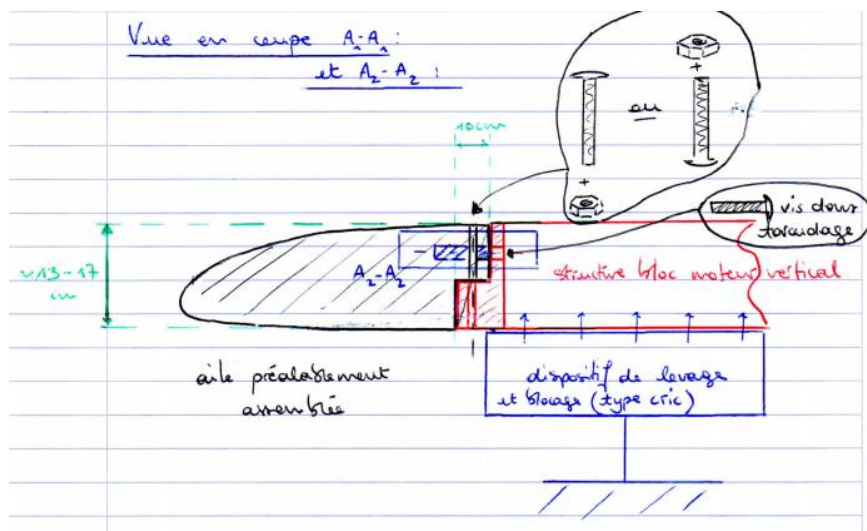 Vue en coupe A₁-A₁ :
et A₂-A₂ :
10cm
ou
+
+
vis dans
taraudage
~13-17
cm
A₂-A₂
structure bloc moteur vertical
aile préalablement
assemblée
dispositif de levage
et blocage (type cric)